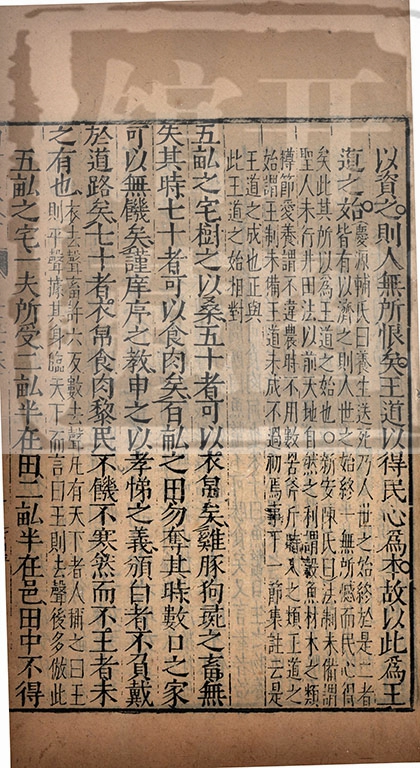 以資之則人無所恨矣王道以得民心為本故以此為王
道之始慶源輔氏曰養生送死乃人世之始終於是二者
皆有以濟之則人世之始終一無所憾而民心得
矣此其所以為王道之始也○新安陳氏曰法制未備謂
聖人未行井田法以前天地自然之利謂穀魚材木之類
撙節愛養謂不違農時不用數罟斧斤時入之類王道之
始謂王制未備王道未成不過初焉事耳下一節集註云是
王道之成也正與
此王道之始相對
五畝之宅樹之以桑五十者可以衣帛矣雞豚狗彘之畜無
失其時七十者可以食肉矣百畝之田勿奪其時數口之家
可以無饑矣謹庠序之教申之以孝悌之義頒白者不負戴
於道路矣七十者衣帛食肉黎民不饑不寒然而不王者未
之有也衣去聲畜許六反數去聲凡有天下者人稱之曰王
則平聲據其身臨天下而言曰王則去聲後多倣此
五畝之宅一夫所受二畝半在田二畝半在邑田中不得